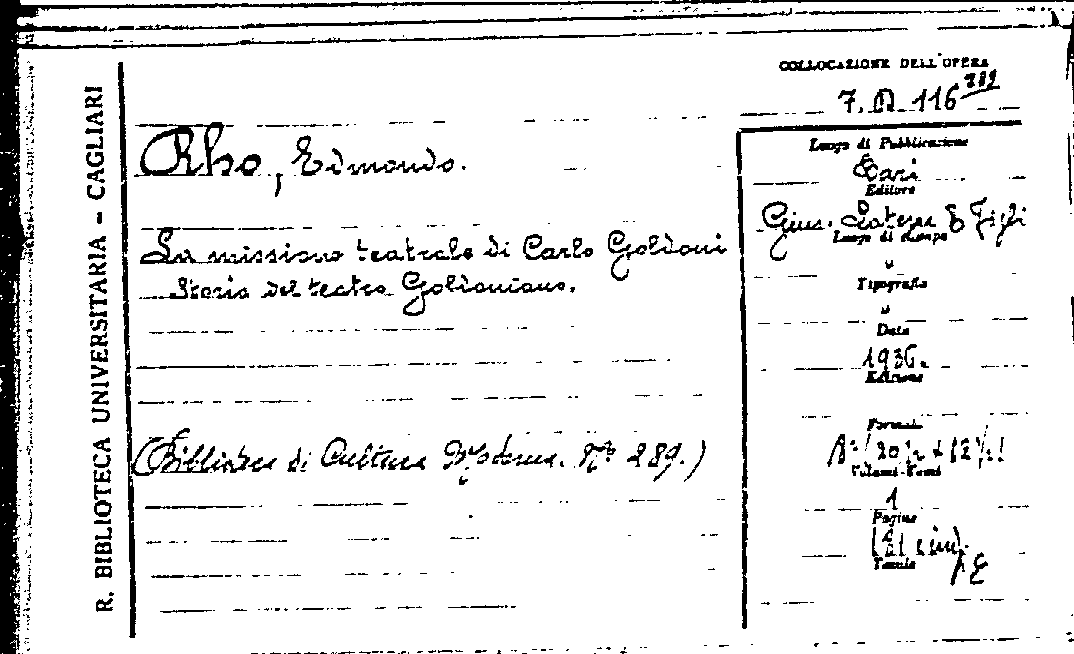 R. BIBLIOTECA UNIVERSITARIA - CAGLIARI
COLLOCAZIONE DELL'OPERA
7. 116 289
Rho, Edmondo.
La missione teatrale di Carlo Goldoni
Storia del teatro Goldoniano.
(Biblioteca di Cultura Moderna. Nº 289.)
Luogo di Pubblicazione
Bari
Editore
Gius. Laterza & Figli
Luogo di stampa
"
Tipografia
"
Data
1936.
Edizione
Formato
Volumi-Tomi
1
Pagine
Tavole